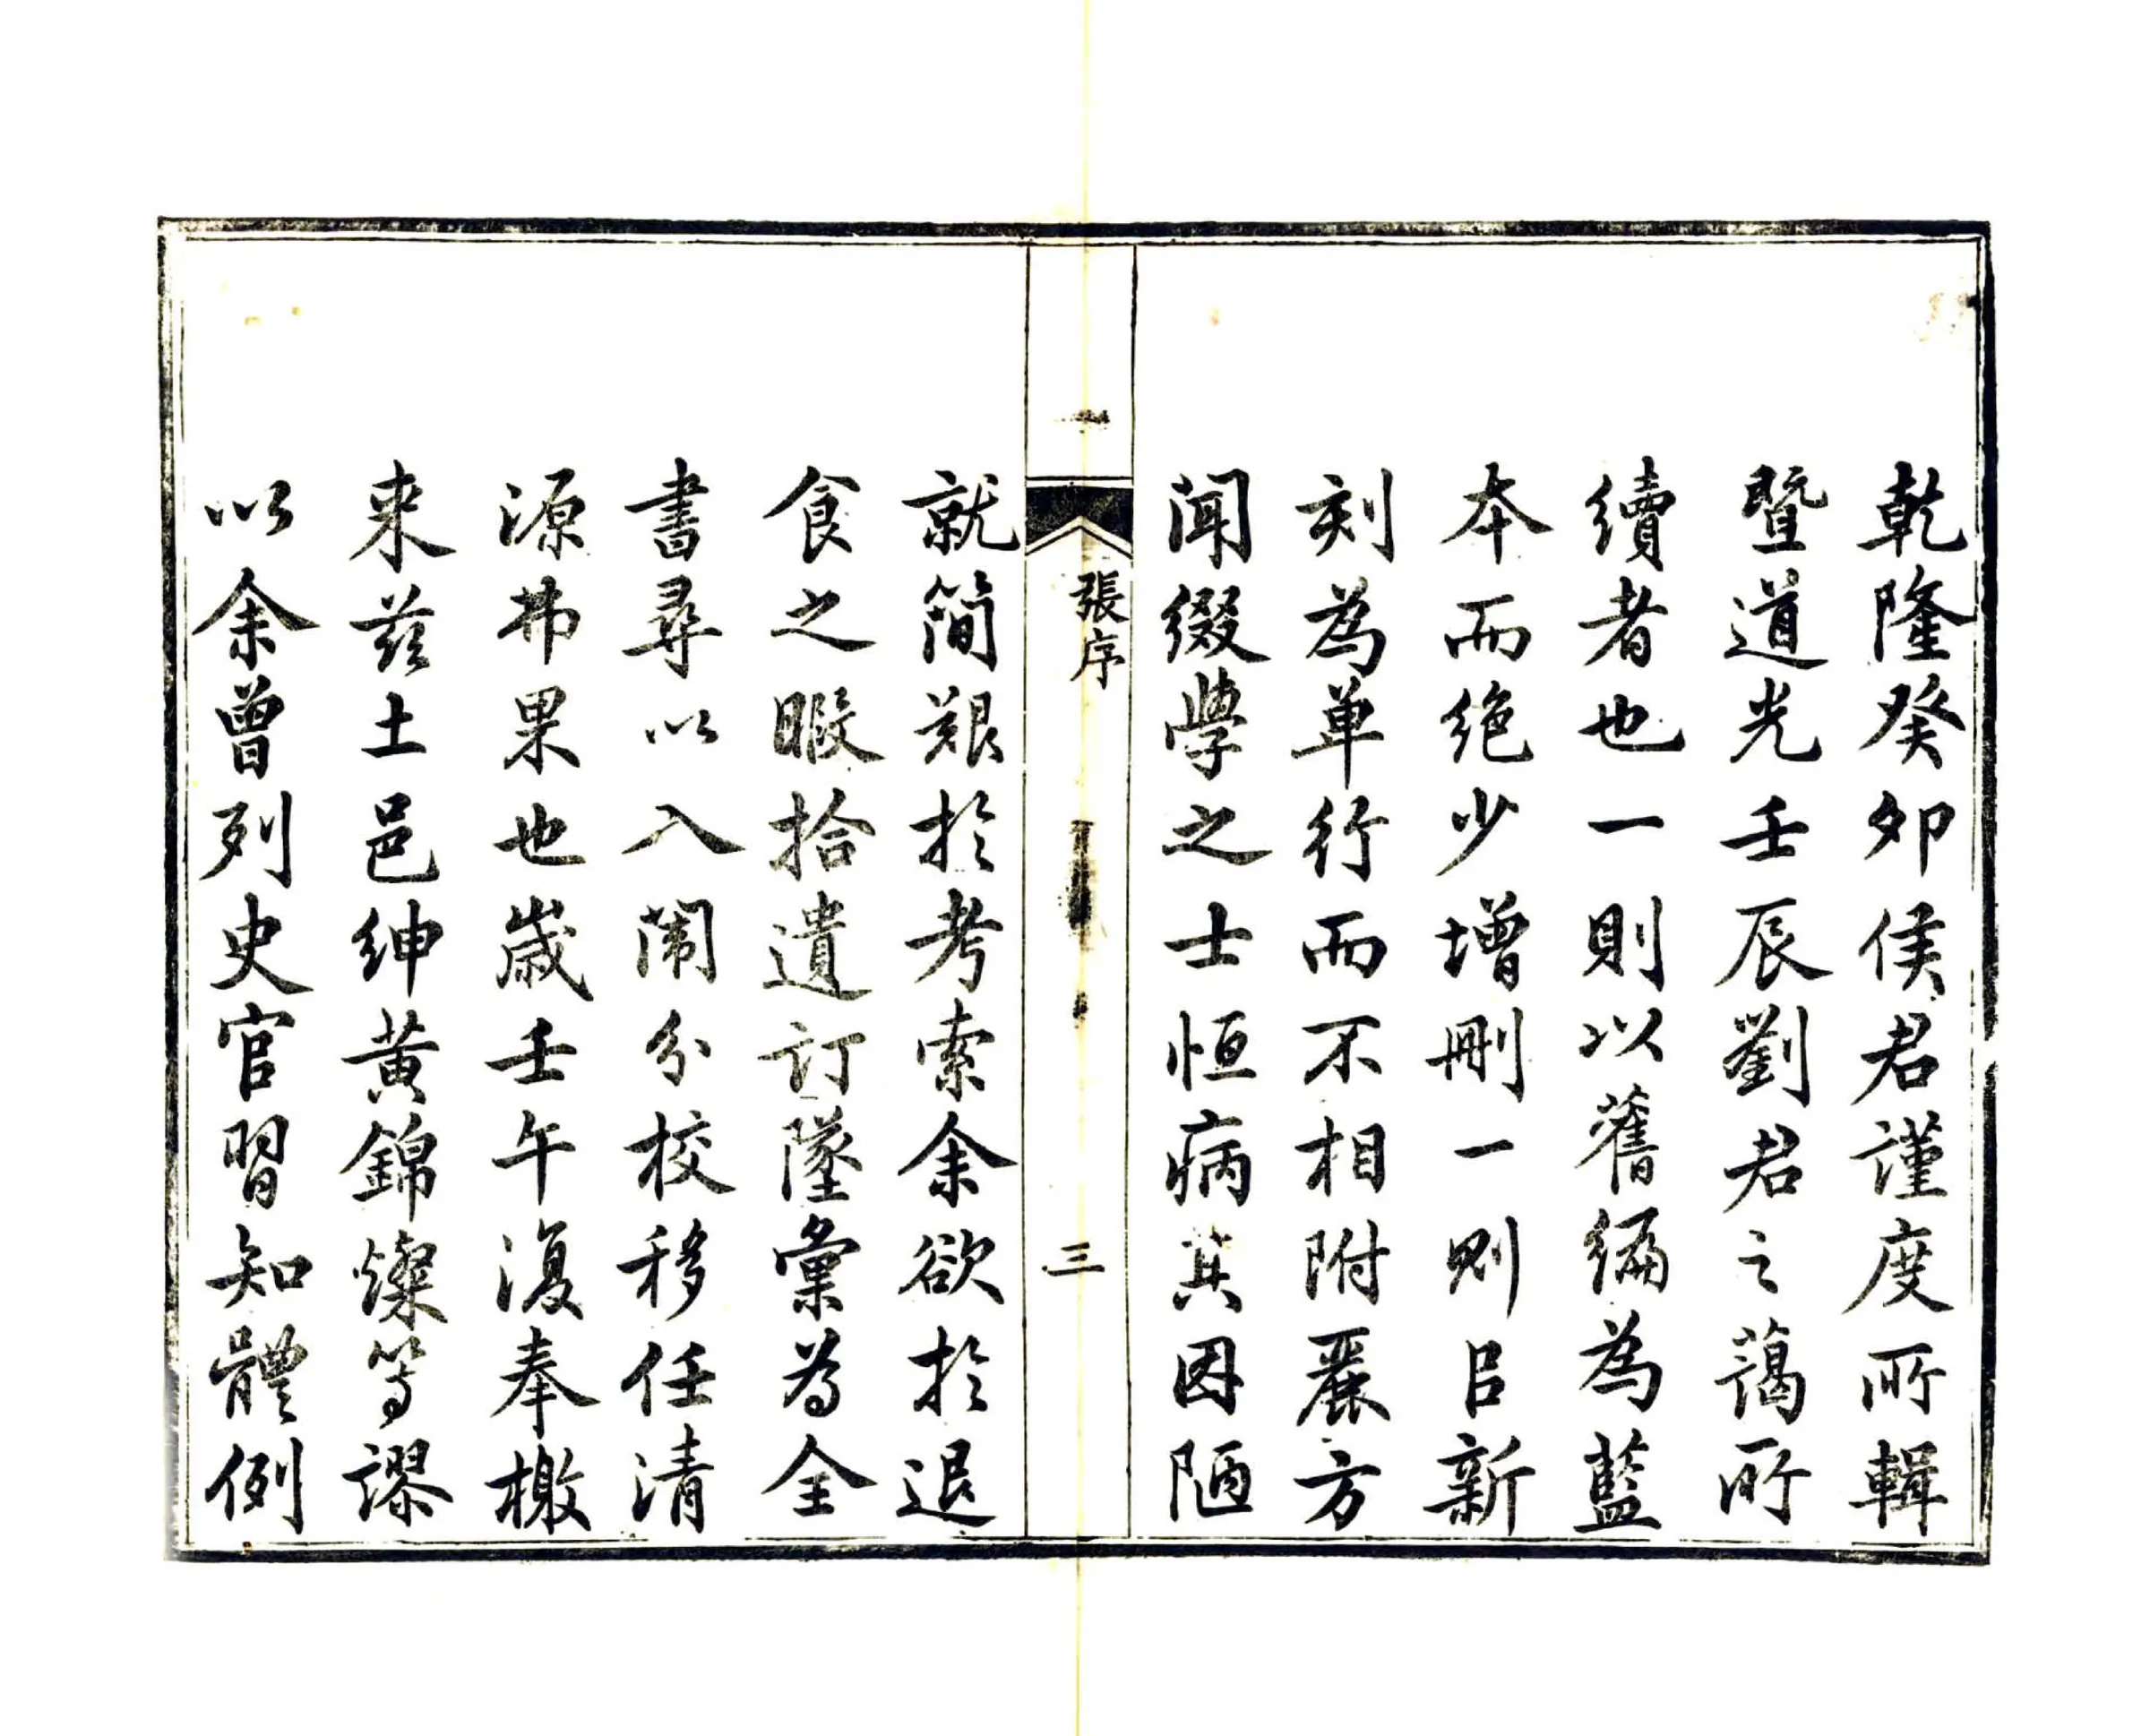 乾隆癸卯侯君謹度所輯
暨道光壬辰劉君之藹所
續者也一則以舊編為藍
本而絶少增刪一則㠯新
刻為單行而不相附麗方
聞綴學之士恒病其因陋
張序
三
就簡艱於考索余欲於退
食之暇拾遺訂墜彙為全
書尋以入闈分校移任清
源弗果也歲壬午復奉檄
來茲土邑紳黃錦燦等謬
以余曾列史官習知體例